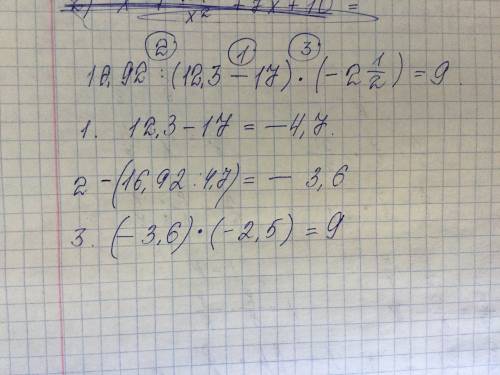 ② ① ③
16,92 : (12,3 − 17) · (−2 1/2) = 9
1. 12,3 − 17 = −4,7.
2 −(16,92 : 4,7) = − 3,6
3. (− 3,6) · (−2,5) = 9